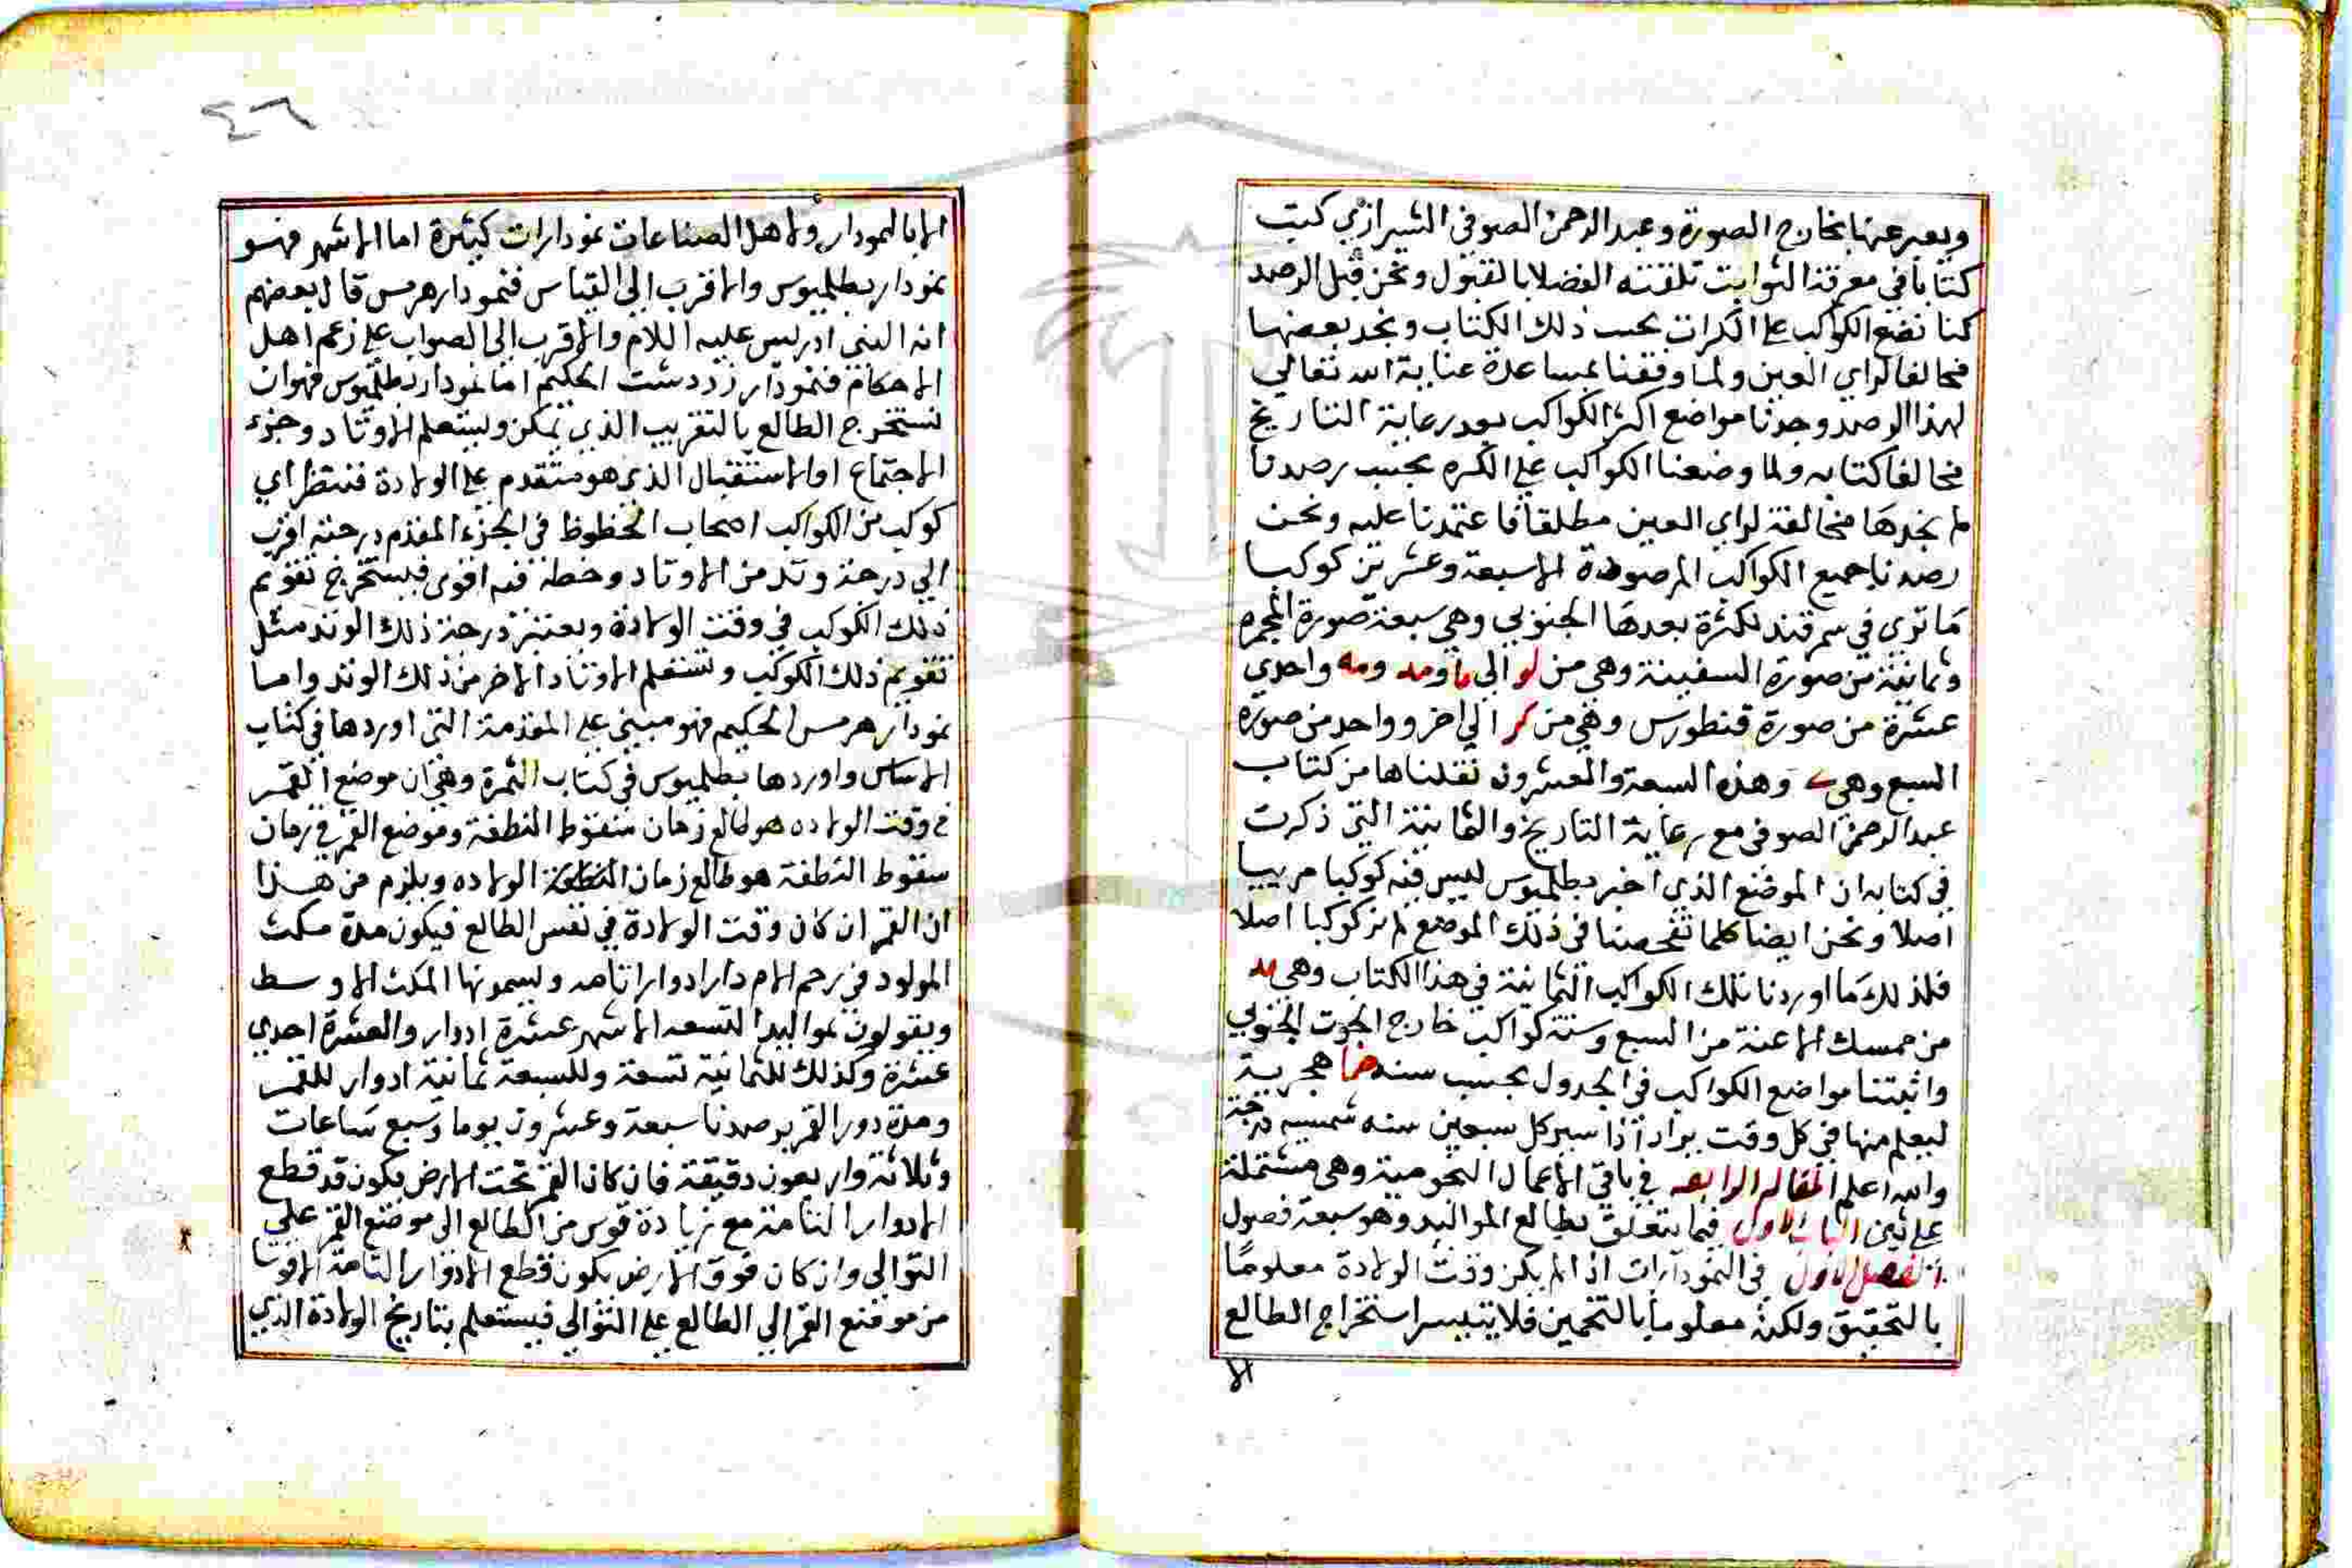 ويعبر عنها بخارج الصورة وعبد الرحمن الصوفي الشيرازي كتب
كتابا في معرفة الثوابت تلقته الفضلا بالقبول ونحن قبل الرصد
كنا نضع الكواكب على الكرات بحسب ذلك الكتاب ونجد بعضها
مخالفا لراي العين ولما وفقنا بمساعدة عناية الله تعالي
لهذا الرصد وجدنا مواضع اكثر الكواكب بعد رعاية التاريخ
مخالفا كتابه ولما وضعنا الكواكب على الكره بحسب رصدنا
لم نجدها مخالفة لراي العين مطلقا فاعتمدنا عليه ونحن
رصدنا جميع الكواكب المرصودة الا سبعة وعشرين كوكبا
ما تري في سمرقند لكثرة بعدها الجنوبي وهي سبعة صورة المجمره
وثمانية من صورة السفينة وهي من لو الي ما ومد ومه واحدي
عشرة من صورة قنطورس وهي من كر الي اخر وواحد من صورة
السبع وهي ـ وهذه السبعة والعشرون نقلناها من كتاب
عبد الرحمن الصوفي مع رعاية التاريخ والثمانية التي ذكرت
في كتابه ان الموضع الذي اخبر بطلميوس ليس فيه كوكبا مرييا
اصلا ونحن ايضا كلما تفحصنا في ذلك الموضع لم نر كوكبا اصلا
فلذلك ما اوردنا تلك الكواكب الثمانية في هذا الكتاب وهي يد
من ممسك الاعنة من السبع وستة كواكب خارج الحوت الجنوبي
واثبتنا مواضع الكواكب في الجدول بحسب سنه ضما هجرية
ليعلم منها في كل وقت يراد اذا سير كل سبعين سنه شمسيه درجة
والله اعلم المقاله الرابعه في باقي الاعمال النجومية وهي مشتملة
على بابين الباب الاول فيما يتعلق بطالع المواليد وهو سبعة فصول
الفصل الاول في النمودارات اذا لم يكن وقت الولادة معلوما
بالتحقيق ولكنه معلوما بالتخمين فلا يتيسر استخراج الطالع
الا
٤٦
الا بالنمودار ولاهل الصناعات نمودارات كثيرة اما الاشهر فهو
نمودار بطلميوس والاقرب الي القياس فنمودار هرمس قال بعضهم
انه النبي ادريس عليه اللام والاقرب الي الصواب على زعم اهل
الاحكام فنمودار زردشت الحكيم اما نمودار بطلميوس فهو ان
نستخرج الطالع بالتقريب الذي يمكن وليستعلم الاوتاد وجزء
الاجتماع او الاستقبال الذي هو متقدم على الولادة فننتظر اي
كوكب من الكواكب اصحاب الحظوظ في الجزء المقدم درجته اقرب
الي درجة وتد من الاوتاد وخطه فيه اقوى فيستخرج تقويم
ذلك الكوكب في وقت الولادة ويعتبر درجة ذلك الوتد مثل
تقويم ذلك الكوكب ونستعلم الاوتاد الاخر من ذلك الوتد واما
نمودار هرمس الحكيم فهو مبني على المقدمة التي اوردها في كتاب
الاساس واوردها بطلميوس في كتاب الثمرة وهي ان موضع القمر
في وقت الولاده هو طالع زمان سقوط النطفة وموضع القمر في زمان
سقوط النطفة هو طالع زمان النطفة الولاده ويلزم من هذا
ان القمر ان كان وقت الولادة في نفس الطالع فيكون مدة مكث
المولود في رحم الام دار ادوارا تامه ويسمونها المكث الاوسط
ويقولون لمواليدا لتسعه الاشهر عشرة ادوار والعشرة احدي
عشرة وكذلك للثمانية تسعة وللسبعة ثمانية ادوار للقمر
ومدة دور القمر برصدنا سبعة وعشرون يوما وسبع ساعات
وثلاثة واربعون دقيقة فان كان القمر تحت الارض يكون قد قطع
الادوار التامة مع زيادة قوس من الطالع الى موضع القمر على
التوالي وان كان فوق الارض يكون قطع الادوار التامة الا قوسا
من موضع القمر الي الطالع على التوالي فيستعلم بتاريخ الولادة الذي